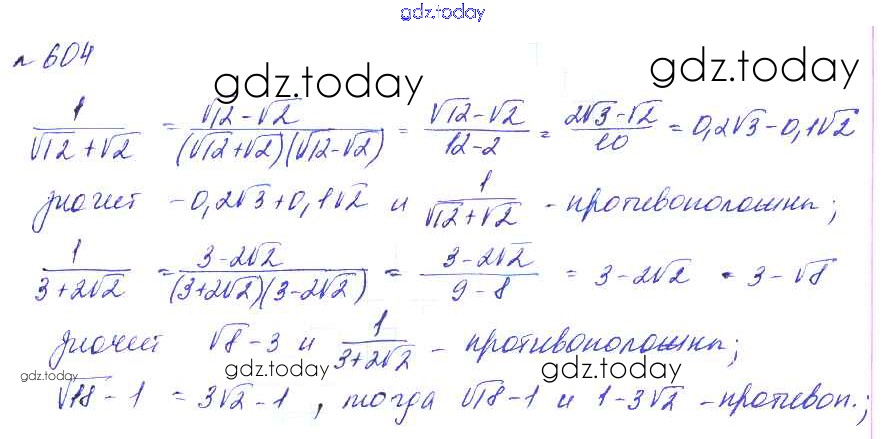 gdz.today
№ 604
gdz.today
gdz.today
1/(√12+√2) = (√12-√2)/((√12+√2)(√12-√2)) = (√12-√2)/(12-2) = (2√3-√2)/10 = 0,2√3-0,1√2
значит -0,2√3+0,1√2 и 1/(√12+√2) - противоположны;
1/(3+2√2) = (3-2√2)/((3+2√2)(3-2√2)) = (3-2√2)/(9-8) = 3-2√2 = 3-√8
значит √8-3 и 1/(3+2√2) - противоположны;
gdz.today
gdz.today
gdz.today
√18-1 = 3√2-1, тогда √18-1 и 1-3√2 - противоп.;